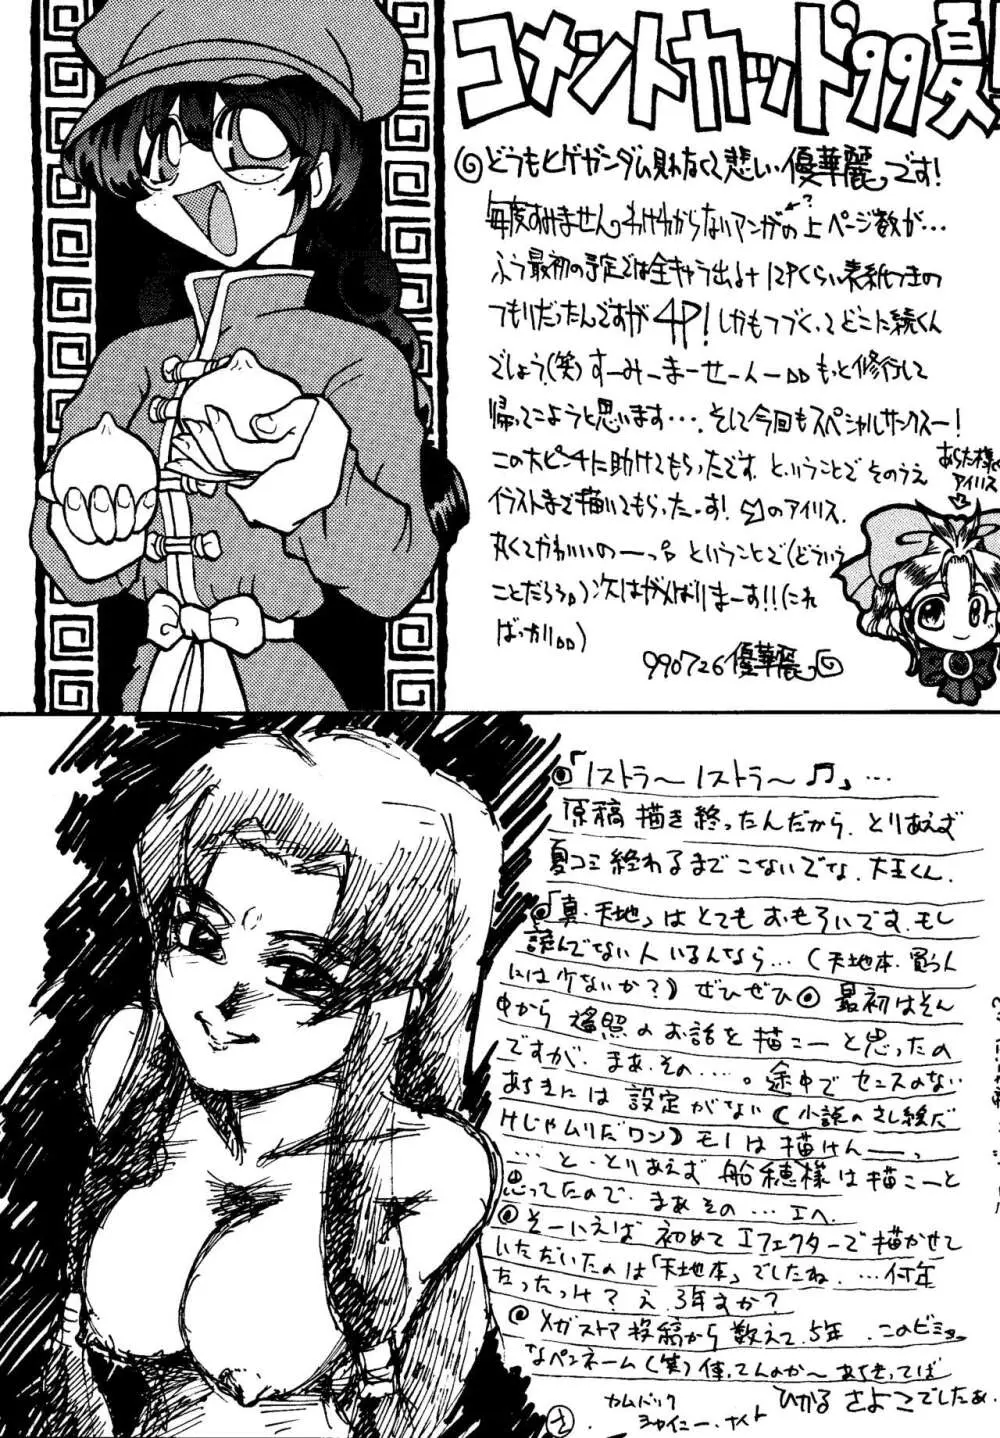 コメントカット'99夏!
どうもヒゲガンダム見れなくて悲しい優華麗っです!
毎度すみません。わけわからないアンガの上ページ数が…
?
ふう最初の予定では全キャラ出る+12Pくらい表紙つきの
つもりだったんですが4P!しかもつづくってどこに続くん
でしょう(笑)すーみーまーせーんー もっと修行して
帰ってこようと思います…。そして今回もスペシャルサンクスー!
この大ピンチに助けてもらったです。ということでそのうえ
イラストまで描いてもらったっす!のアイリス。
あらた様く
アイリス
丸くてかわいいのーっ。ということで(どういう
ことだろう。)次はがんばりまーす!!(これ
ばっかり)
990726優華麗っ
「ノストラ〜ノストラ〜♬」…
原稿描き終ったんだから、とりあえず
夏コミ終わるまでこないでな、大王くん。
「真・天地」はとてもおもろいです。もし
読んでない人いるんなら…(天地本、買う人
には少ないか?)ぜひぜひ 最初はそん
中から遙照のお話を描こーと思ったの
ですが、まあ、その…。途中でセンスのない
あちきには設定がない(小説のさし絵だ
けじゃムリだワン)モノは描けんーっ
…と、とりあえず船穂様は描こーと
思ってたので、まあその…エヘ。
そーいえば初めてエフェクターで描かせて
いただいたのは「天地本」でしたね。…何年
たったっけ?え、3年ですか?
メガストア投稿から数えて、5年。このビミョー
なペンネーム(笑)使ってんのか〜あちきってば
ひかるさよこでしたぁ。
カムバック
シャイニー・ナイト